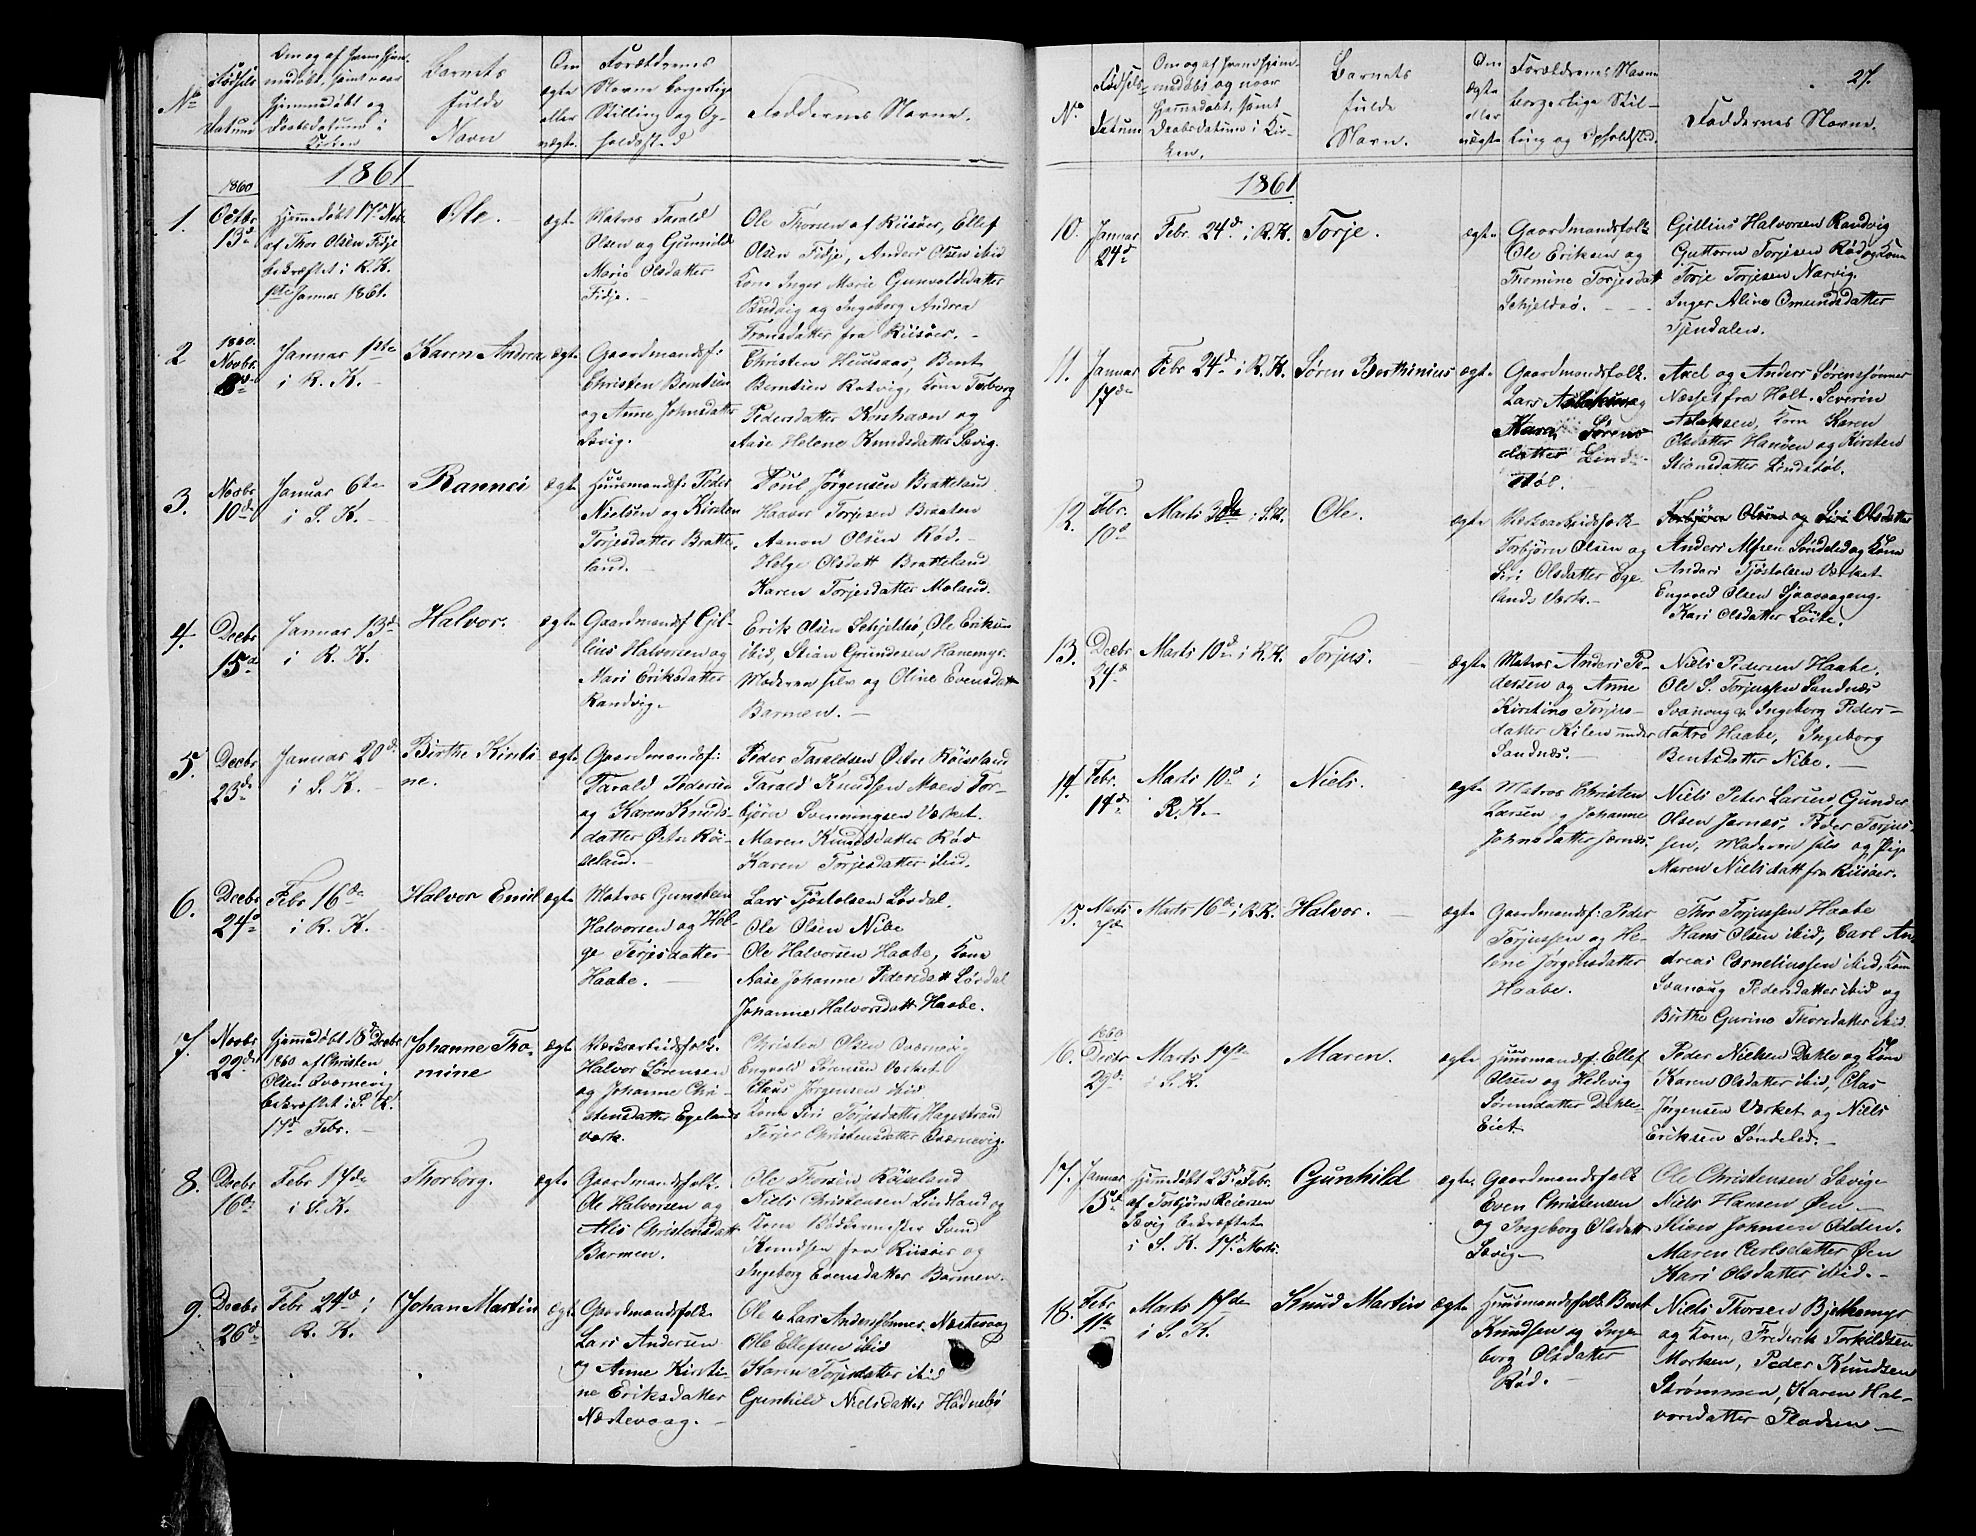 No
Fødsels
Datum
Om og af hvem hjem-
medøbt, samt naar
hjemmedøbt og
Daabsdatum i
Kirken
Barnets
fulde
Navn
Om
ægte
eller
uægte.
Forældrenes
Navne borgerlige
Stilling og Op-
holdsted
Faddernes Navne.
1861
1.
1860
Octbr
13de
Hjemmedøbt 17de Nov.
af Thor Olsen Fidje
bekræftet i R. K.
1ste Januar 1861.
Ole.
ægte
Matros Tarald
Olsen og Gunnild
Marie Olsdatter
Fidje.
Ole Thorsen af Riisøer, Ellef
Olsen Fidje, Anders Olsen ibid
Kone Inger Marie Gunvaldsdatter
Budvig og Ingeborg Andrea
Tronsdatter fra Riisøer.
2
1860.
Novbr.
8de
Januar 1ste
i R. K.
Karen Andrea
ægte
Gaardmandsf:
Christen Berntsen
og Anne Johnsdatter
Sævig.
Christen Huusaas, Bent
Berntsen Rotvig, Kone Torborg
Pedersdatter Korshavn og
Aase Helene Knudsdatter Sævig.
3.
Novbr
10de
Januar 6te
i S. K.
Rannei
ægte
Huusmandsf: Peder
Nielsen og Kirsten
Torjesdatter Bratte-
land.
Poul Jørgensen Bratteland
Haavor Torjesen Braaten
Aanon Olsen Rød.
Helge Olsdatt Bratteland
Karen Torjesdatter Moland.
4.
Decbr
15de
Januar 13de
i R. K.
Halvor.
ægte
Gaardmandsf Gil-
lius Halvorsen og
Mari Eriksdatter
Randvig.
Erik Olsen Schjeldsø, Ole Eriksen
ibid, Stian Grundesen Hanemyr.
Moderen selv og Oline Evensdatt
Barmen.
5.
Decbr
23de
Januar 20de
i S. K.
Birthe Kirsti-
ne.
ægte
Gaardmandsf:
Tarald Pedersen
og Karen Knuds-
datter Østre Røi-
seland.
Peder Taraldsen Østre Røisland
Tarald Knudsen Moen Tor-
bjørn Svenningsen Værket.
Maren Knudsdatter Rød
Karen Torjesdatter ibid.
6.
Decbr
24de
Febr 16de
i R. K.
Halvor Emil
ægte
Matros Gunsteen
Halvorsen og Hel-
ge Terjesdatter
Haabe.
Lars Tjøstolsen Lørdal.
Ole Olsen Nibe
Ole Halvorsen Haabe, Kone
Aase Johanne Pedersdatt Lørdal
Johanne Halvorsdatt Haabe.
7.
Novbr
22de
Hjemmedøbt 18de Decbr
1860 af Christen
Olsen Qværnevig
bekræftet i S. K.
17de Febr.
Johanne Tho-
mine
ægte
Værksarbeidsfolk
Halvor Sørensen
og Johanne Chri-
stensdatter Egelands
værk.
Christen Olsen Qværnevig
Engvold Sørensen Værket
Claus Jørgensen ibid
Kone Siri Torjesdatter Hagestrand
Terjer Christensdatter Qværnevig.
8.
Decbr
16de
Febr 17de
i S. K.
Thorborg.
ægte
Gaardmandsfolk.
Ole Halvorsen og
Alis Christensdatt
Barmen.
Ole Thorsen Røiseland
Niels Christensen Lindland og
Kone Bødkermester Svend
Knudsen fra Riisøer og
Ingeborg Evensdatter Barmen.
9.
Decbr
26de
Febr 24de i
R. K.
Johan Martin
ægte
Gaardmandsfolk
Lars Andersen
og Anne Kirsti-
ne Eriksdatter
Næstevaag.
Ole & Lars Anderssønner, Næstevaag
Ole Ellefsen ibid
Karen Torjesdatter ibid
Gunhild Nielsdatter Hødnebø
27.
No.
Fødsels-
datum
Om og af hvem hjem-
medøbt og naar
hjemmedøbt, samt
Daabsdatum i Kir-
ken.
Barnets
fulde
Navn.
Om
ægte
eller
uægte
Forældrenes Navne
borgerlige Stil-
ling og Opholdsted.
Faddernes Navne.
1861
10.
Januar
24de
Febr. 24de i R. K.
Torje.
ægte
Gaardmandsfolk
Ole Eriksen og
Thomine Torjesdatt
Schjeldsø.
Gjillius Halvorsen Randvig
Guttorm Torjesen Rød og Kone
Torje Torjesen Narvig.
Inger Aline Omundsdatter
Tjendalen.
11.
Januar
17de
Febr 24de i R. K.
Søren Berthinius
ægte
Gaardmandsfolk.
Lars Aslaksen og
Karen Sørens
datter Lind-
støl.
Axel og Anders Sørenssønner
Næsset fra Holt. Severin
Aslaksen, Kone Karen
Olsdatter Hanøen og Kirsten
Stiansdatter Lindstøl.
12.
Febr.
10de
Marts 3die i S. K.
Ole.
ægte
Værksarbeidsfolk
Torbjörn Olsen og
Siri Olsdatter Ege-
lands Værk.
Torbjörn Olsen og Siri Olsdatter
Anders Alfsen Söndeled og Kone
Anders Tjøstolsen Værket
Engvold Olsen Sjaavaageng.
Kari Olsdatter Løite.
13.
Decbr
24de
Marts 10de i R. K.
Torjus.
ægte
Matros Anders Pe-
dersen og Anne
Kirstine Torjus-
datter Kilen under
Sandnæs.
Niels Pedersen Haabe.
Ole S. Torjussen Sandnæs
Svanoug & Ingeborg Peders-
døtre Haabe, Ingeborg
Bentsdatter Nibe.
14.
Febr.
14de
Marts 10de i
R. K.
Niels.
ægte
Matros Christen
Larsen og Johanne
Johnsdatter Jernæs.
Niels Peter Larsen, Gunder
Olsen Jernæs, Peder Torjus-
sen, Moderen selv og Pige
Maren Nielsdatt fra Riisøer.
15.
Marts
7de
Marts 16de i R. K.
Halvor.
ægte
Gaardmandsf: Peder
Torjussen og He-
lene Jørgensdatter
Haabe.
Thor Torjussen Haabe
Hans Olsen ibid, Carl An-
dreas Corneliussen ibid, Kone
Svanoug Pedersdatter ibid og
Birthe Gurine Thorsdatter ibid.
6.
1860
Decbr
29de
Marts 17de
i S. K.
Maren.
ægte
Huusmandsf. Ellef
Olsen og Hedevig
Sørensdatter Dahle-
Eiet.
Peder Nielsen Dahle og Kone
Karen Olsdatter ibid, Clas
Jørgensen Værket og Niels
Eriksen Søndeled.
17.
Januar
15de
Hjemmedøbt 25de Febr.
af Torbjörn Reiersen
Sævig bekræftet
i S. K. 17de Marts.
Gunhild
ægte.
Gaardmandsfolk
Even Christensen
og Ingeborg Olsdatt
Sævig
Ole Christensen Sævig
Niels Hansen Øen
Johnsen Odden.
Maren Carlsdatter Øen
Kari Olsdatter ibid.
18.
Febr
11te
Marts 17de
i S. K.
Knud Martin
ægte
Huusmandsfolk Bent
Knudsen og Inge-
borg Olsdatter
Rød.
Niels Thorsen Bjelkemyr
og Kone, Frederik Torkildsen
Morksen, Peder Knudsen
Strømmen, Karen Hal-
vorsdatter Pladsen